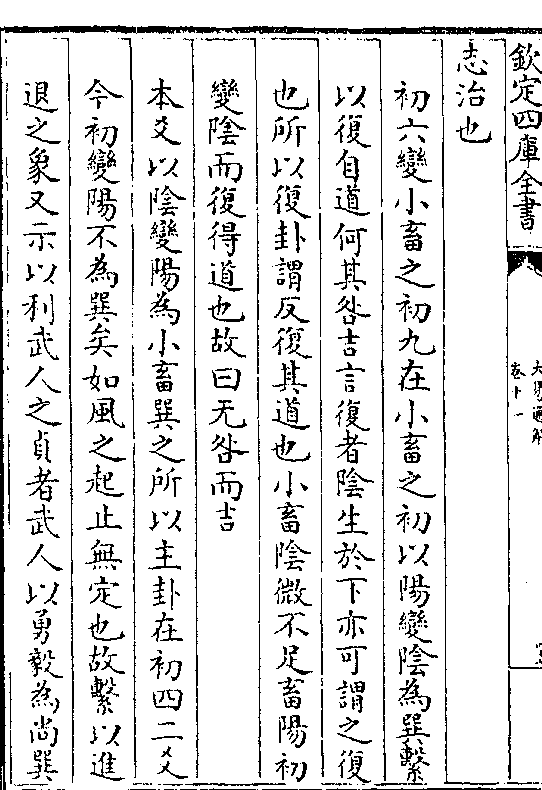 欽定四庫全書
大易通解
卷十一
志治也
初六變小畜之初九在小畜之初以陽變陰為巽繫
以復自道何其咎吉言復者陰生於下亦可謂之復
也所以復卦謂反復其道也小畜陰微不足畜陽初
變陰而復得道也故曰无咎而吉
本爻以陰變陽為小畜巽之所以主卦在初四二爻
今初變陽不為巽矣如風之起止無定也故繫以進
退之象又示以利武人之貞者武人以勇毅為尚巽